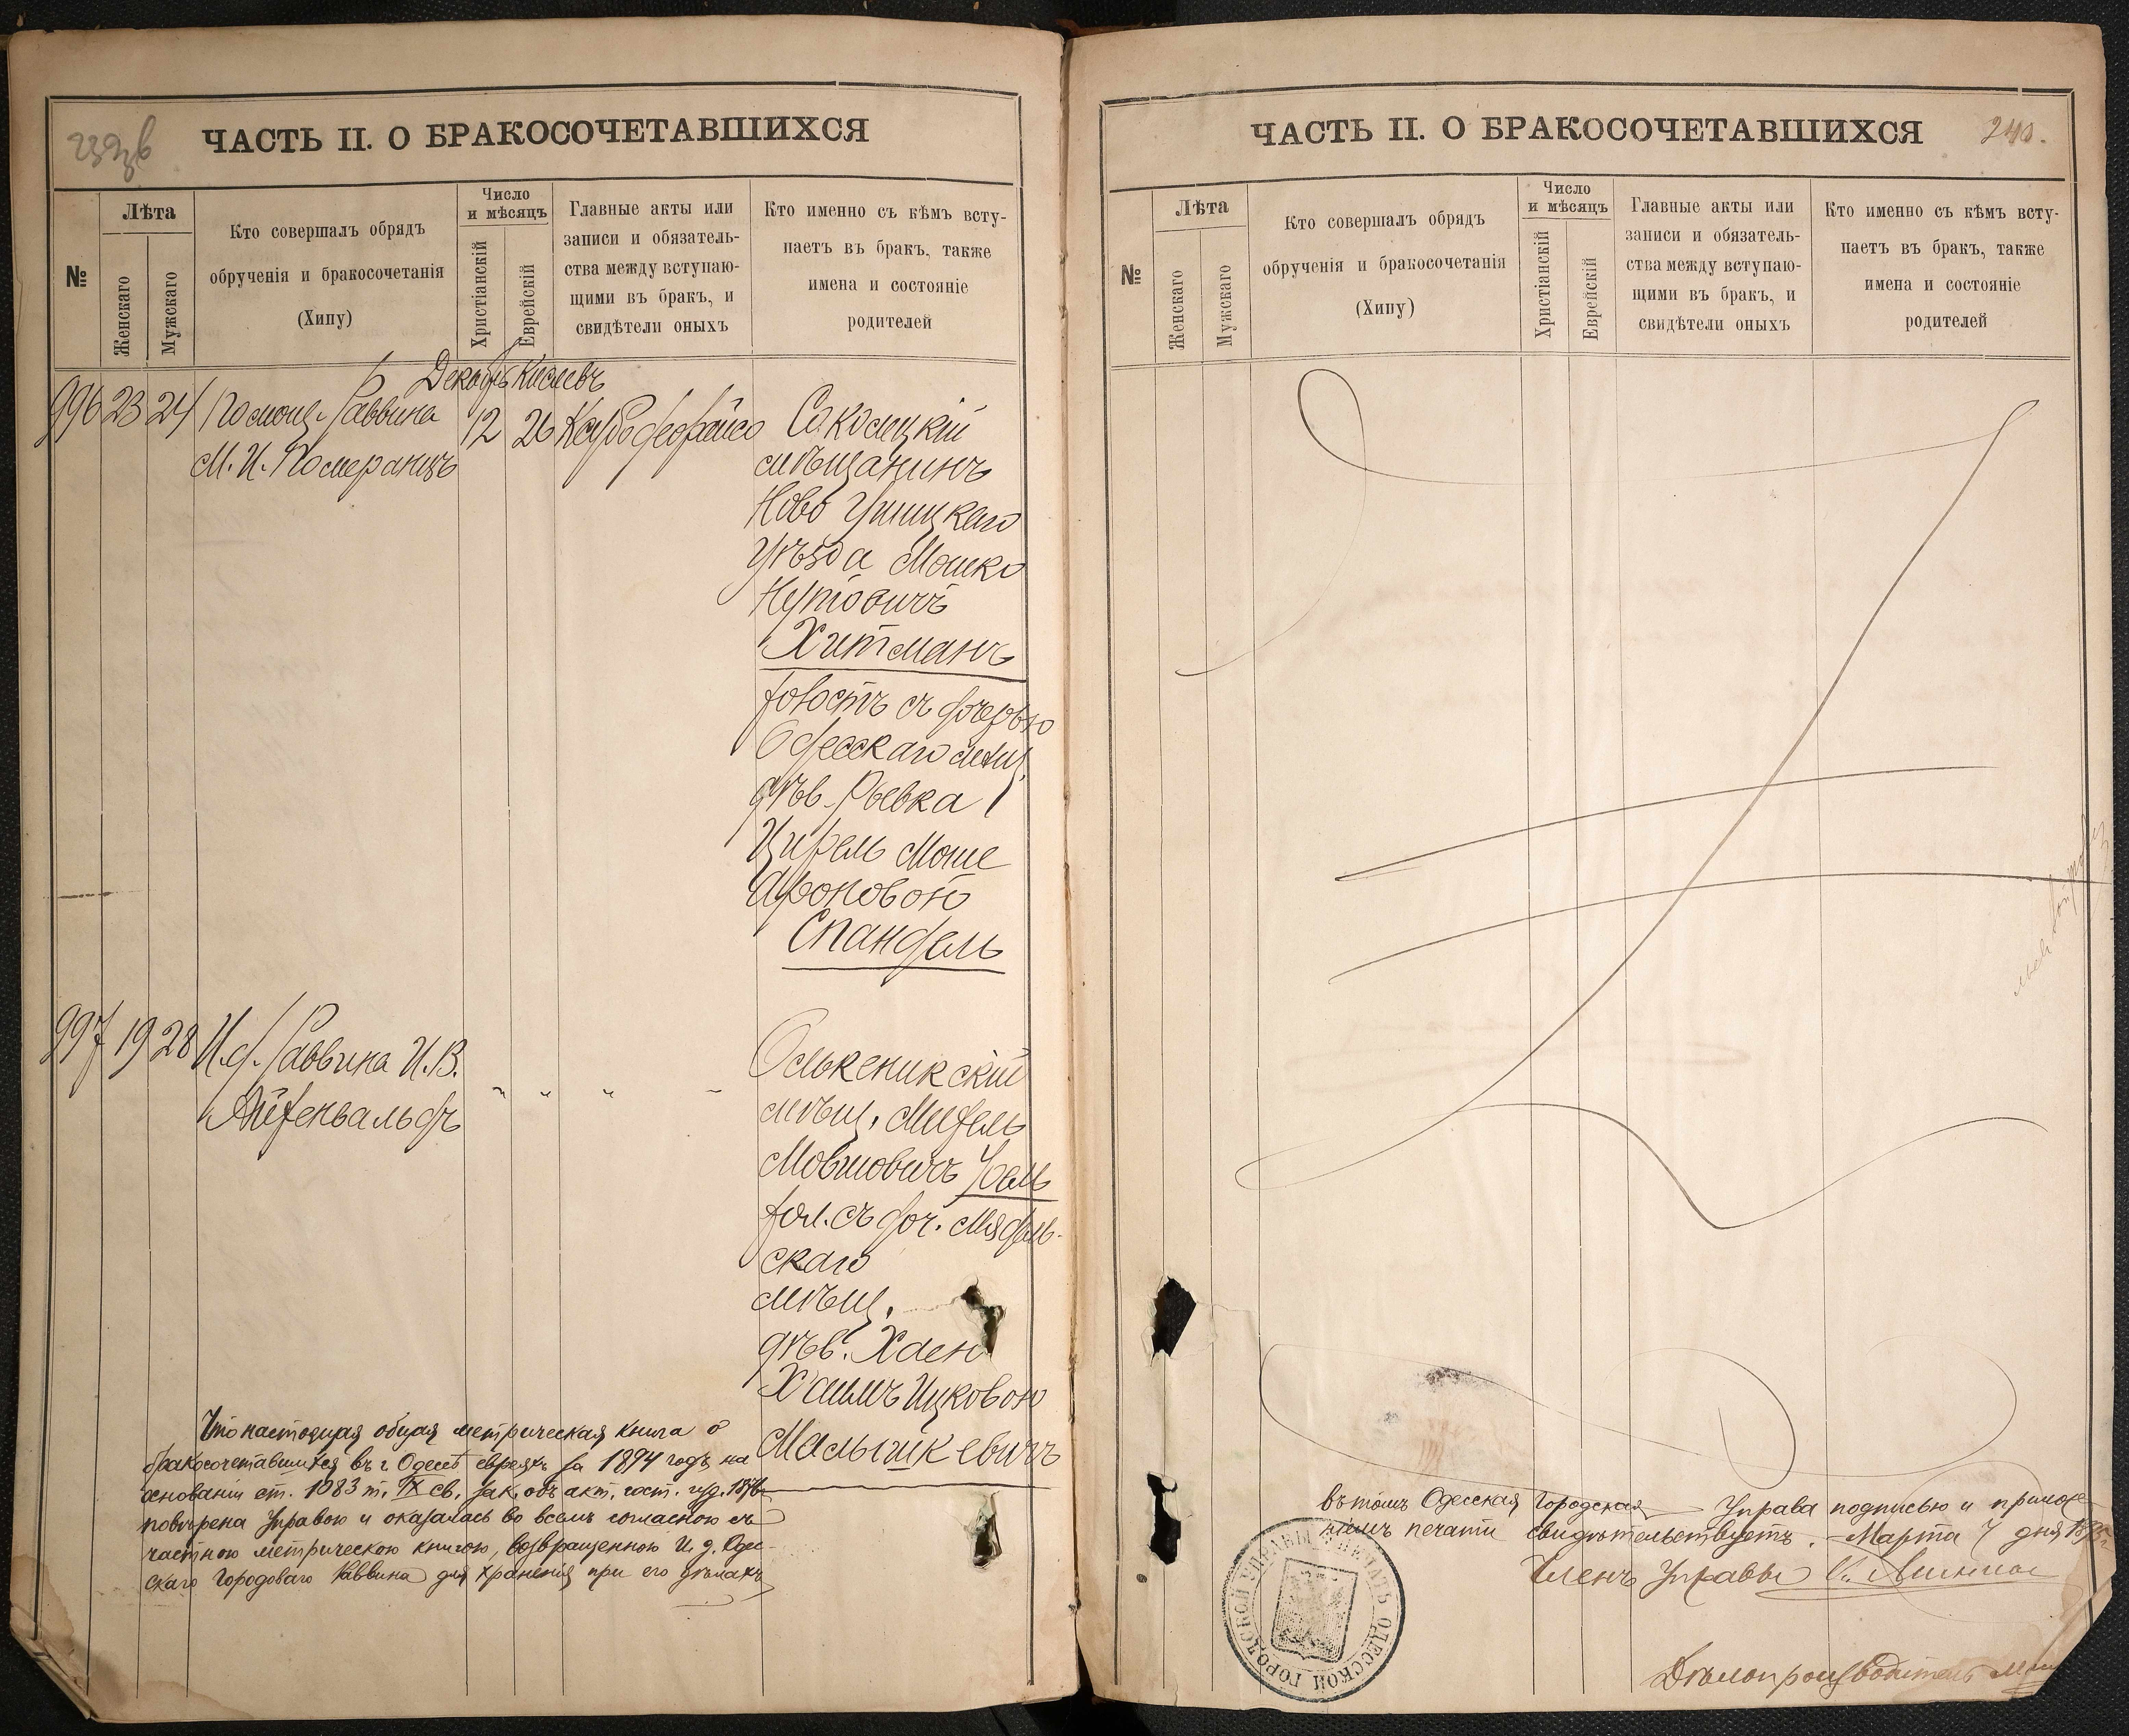 ЧАСТЬ II. О БРАКОСОЧЕТАВШИХСЯ
№
Лѣта
Женскаго
Мужскаго
Кто совершалъ обрядъ
обрученія и бракосочетанія
(Хипу)
Число
и мѣсяцъ
Христіанскій
Еврейскій
Главные акты или
записи и обязатель-
ства между вступаю-
щими въ бракъ, и
свидѣтели оныхъ
Кто именно съ кѣмъ всту-
паетъ въ бракъ, также
имена и состояніе
родителей
Декабрь Кислевъ
996 23 24 Помощ. Раввина
М. И. Померанцъ
12 26
Соколецкій
мѣщанинъ
Ново Ушицкаго
уѣзда Мошко
Нутовичъ
Хитманъ
холостъ съ дочерью
Одесскаго мѣщ.
дѣв. Ривка
Цирель Моше
Ароновой
Спандель
997 19 28 И. д. Раввина И. В.
Айзенвальдъ
" " " "
Олькеникский
мѣщ.
Мовшовичъ
хол. съ доч. Мядель-
скаго
мѣщ.
дѣв. Хаею
Хаимъ Ицковою
Малышкевичъ
Что настоящая общая метрическая книга о
бракосочетавшихся въ г. Одессѣ евреяхъ за 1894 годъ на
основаніи ст. 1083 т. IX св. зак. объ акт. сост. изд. 1876 г.
повѣрена Управою и оказалась во всемъ согласною съ
частною метрическою книгою, возвращенною И. д. Одес-
скаго Городоваго Раввина для храненія при его дѣлахъ
ЧАСТЬ II. О БРАКОСОЧЕТАВШИХСЯ
240.
№
Лѣта
Женскаго
Мужскаго
Кто совершалъ обрядъ
обрученія и бракосочетанія
(Хипу)
Число
и мѣсяцъ
Христіанскій
Еврейскій
Главные акты или
записи и обязатель-
ства между вступаю-
щими въ бракъ, и
свидѣтели оныхъ
Кто именно съ кѣмъ всту-
паетъ въ бракъ, также
имена и состояніе
родителей
въ томъ Одесская Городская Управа подписью и приложе-
ніемъ печати свидѣтельствуетъ. Марта 7 дня 1895 г.
Членъ Управы
Дѣлопроизводитель
ПЕЧАТЬ ОДЕССКОЙ ГОРОДСКОЙ УПРАВЫ